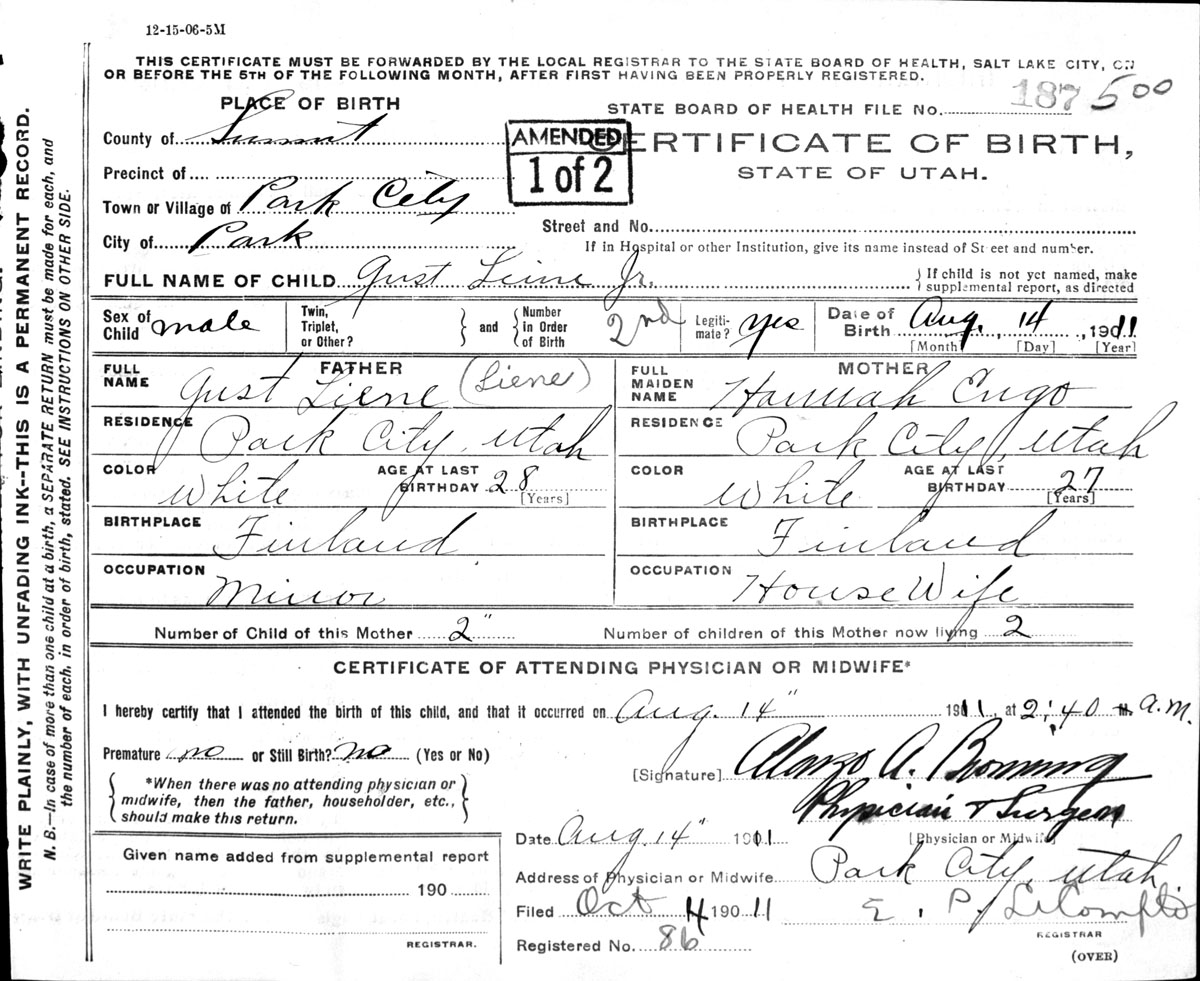 12-15-06-5M
THIS CERTIFICATE MUST BE FORWARDED BY THE LOCAL REGISTRAR TO THE STATE BOARD OF HEALTH, SALT LAKE CITY, ON
OR BEFORE THE 5TH OF THE FOLLOWING MONTH, AFTER FIRST HAVING BEEN PROPERLY REGISTERED.
PLACE OF BIRTH
STATE BOARD OF HEALTH FILE No. 187 500
County of Summit
AMENDED
1 of 2
CERTIFICATE OF BIRTH,
STATE OF UTAH.
Precinct of
Town or Village of Park City
Street and No.
City of Park
If in Hospital or other Institution, give its name instead of Street and number.
FULL NAME OF CHILD Gust Leine Jr.
If child is not yet named, make
supplemental report, as directed
Sex of Child male
Twin, Triplet, or Other?
and
Number in Order of Birth 2nd
Legiti-mate? yes
Date of Birth Aug. 14, 1911
[Month] [Day] [Year]
FATHER
FULL NAME Gust Liene (Liene)
RESIDENCE Park City, Utah
COLOR White AGE AT LAST BIRTHDAY 28 [Years]
BIRTHPLACE Finland
OCCUPATION Minor
MOTHER
FULL MAIDEN NAME Hannah Engo
RESIDENCE Park City, Utah
COLOR White AGE AT LAST BIRTHDAY 27 [Years]
BIRTHPLACE Finland
OCCUPATION House Wife
Number of Child of this Mother 2" Number of children of this Mother now living 2
CERTIFICATE OF ATTENDING PHYSICIAN OR MIDWIFE*
I hereby certify that I attended the birth of this child, and that it occurred on Aug. 14" 1911, at 2:40 A.M.
Premature no or Still Birth? no (Yes or No)
*When there was no attending physician or
midwife, then the father, householder, etc.,
should make this return.
[Signature] Alonzo A.
Physician & Surgeon
Date Aug. 14" 1911
[Physician or Midwife]
Given name added from supplemental report
190
REGISTRAR.
Address of Physician or Midwife Park City, Utah
Filed Oct 4 1911
E. P. LeCompte
REGISTRAR
Registered No. 86
(OVER)
WRITE PLAINLY, WITH UNFADING INK--THIS IS A PERMANENT RECORD.
N. B.--In case of more than one child at a birth, a SEPARATE RETURN must be made for each, and
the number of each, in order of birth, stated. SEE INSTRUCTIONS ON OTHER SIDE.